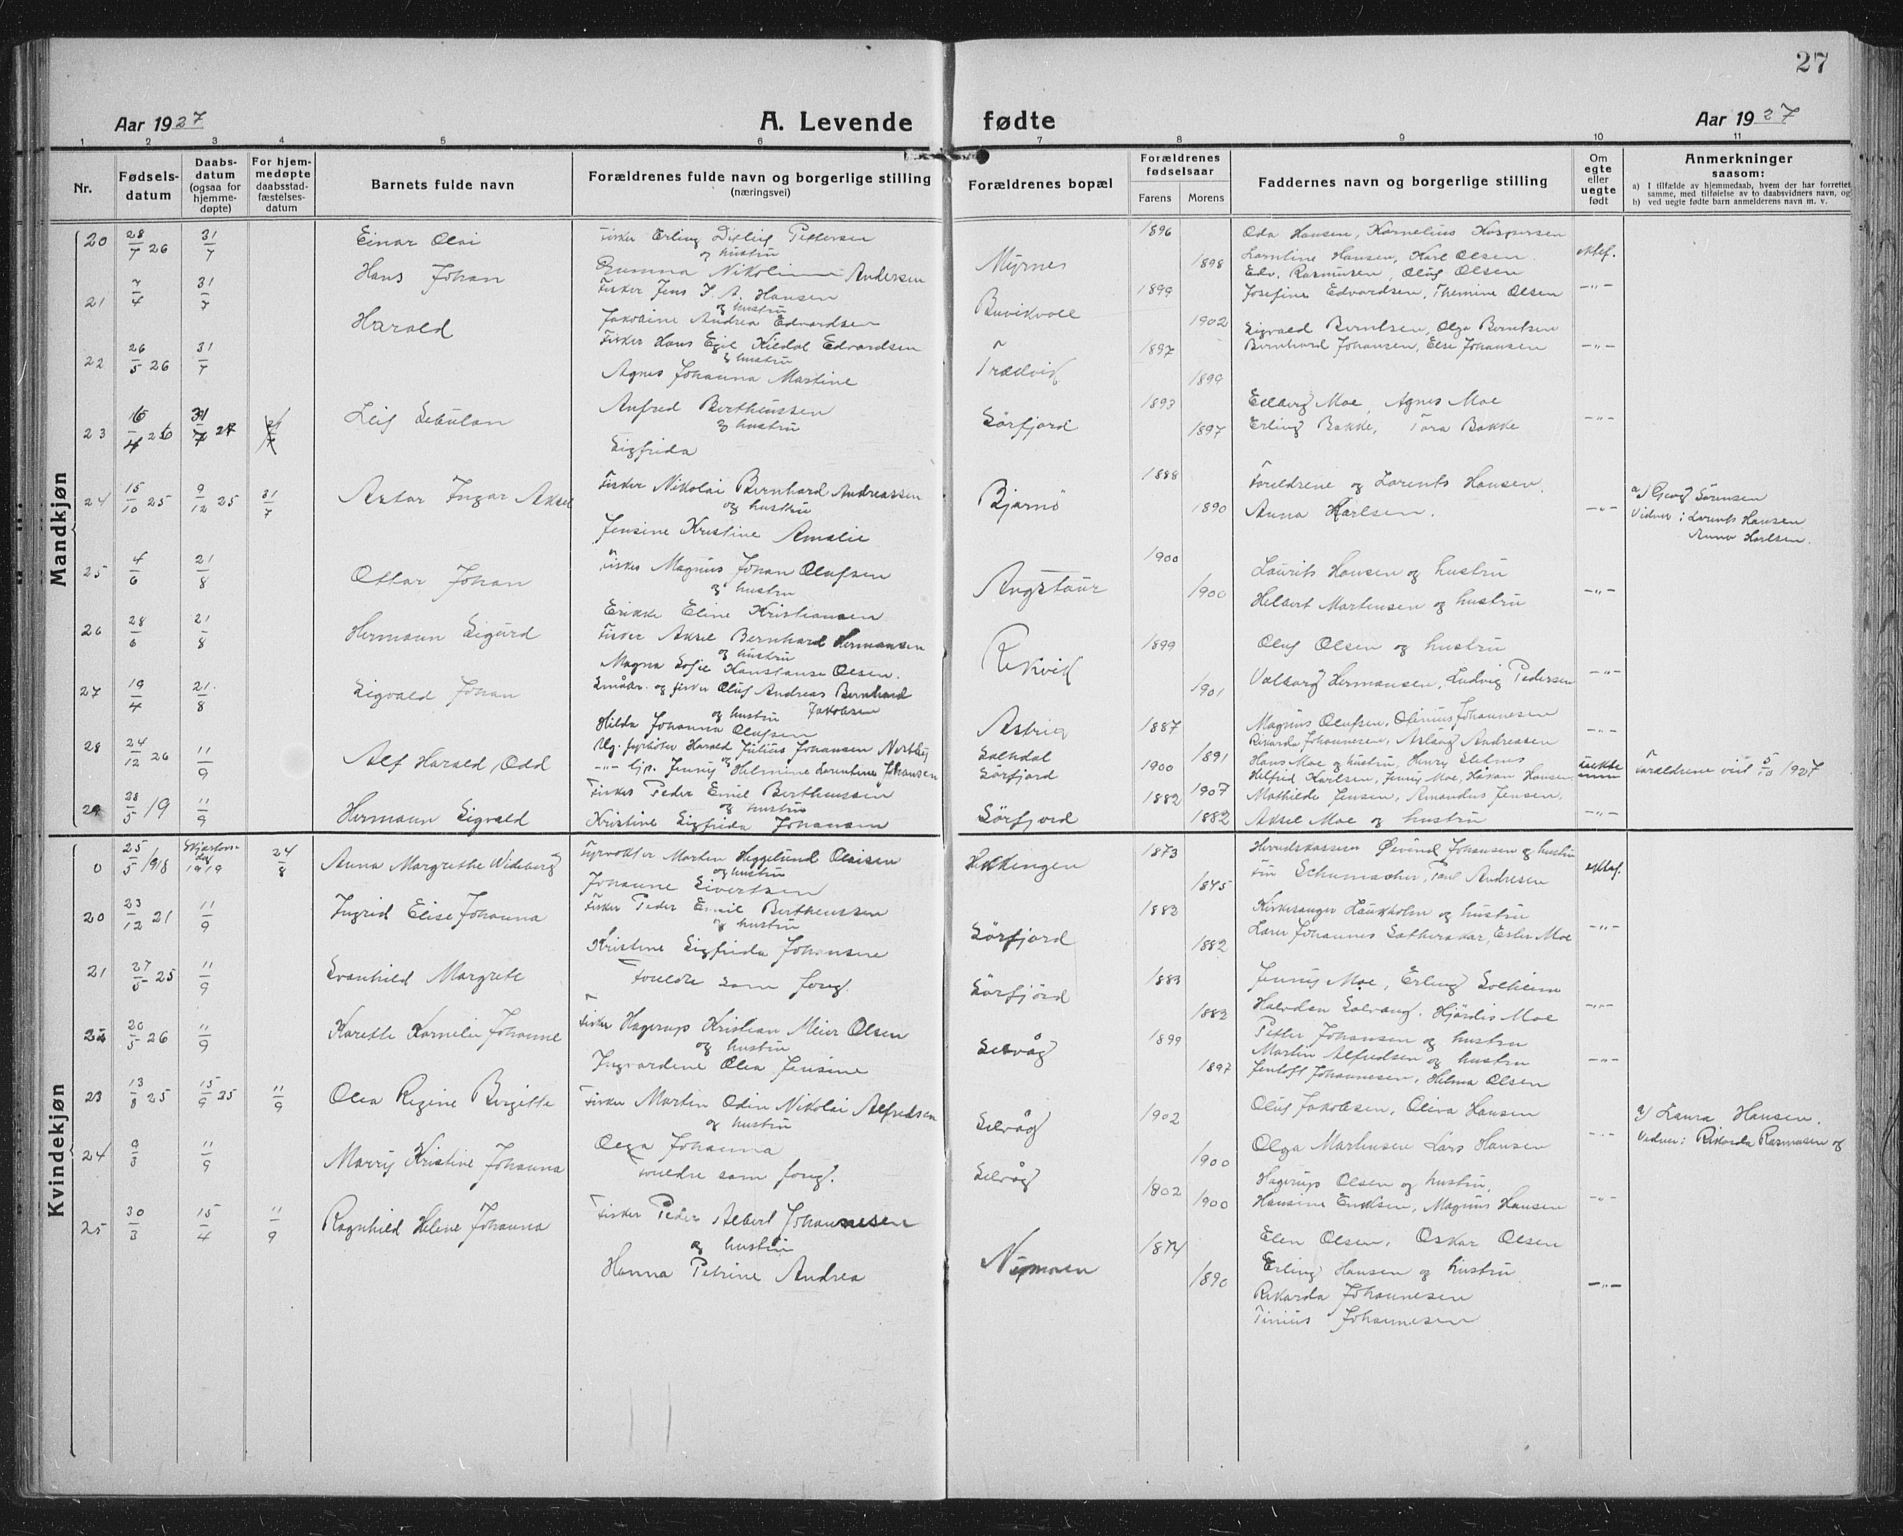 27
Aar 1927 A. Levende fødte Aar 1927
1 2 3 4 5 6 7 8 9 10 11
Nr. Fødselsdatum Daabsdatum (ogsaa for hjemmedøpte) For hjemmedøpte daabsstadfæstelsesdatum Barnets fulde navn Forældrenes fulde navn og borgerlige stilling (næringsvei) Forældrenes bopæl Forældrenes fødselsaar Farens Morens Faddernes navn og borgerlige stilling Om egte eller uegte født Anmerkninger saasom:
a) I tilfælde av hjemmedaab, hvem der har forrettet samme, med tilføielse av to daabsvidners navn, og
b) ved uegte fødte barn anmelderens navn m. v.
Mandkjøn
20 28/7 26 31/7 Einar Olai Fisker Erling Ditlef Pettersen 1896 Oda Hansen, Kornelius Kaspersen
Hans Johan og hustru Myrnes 1898 Larntine Hansen, Karl Olsen ektef.
Nikoline Andersen Edv. Rasmusen, Oluf Olsen
21 7/4 31/7 Fisker Jens J. A. Hansen 1899 Josefine Edvardsen, Themine Olsen -"-
Harald og hustru Buvikvoll
Jakobine Andrea Edvardsen 1902 Sigvald Berntsen, Olga Berntsen
22 26/5 26 31/7 Fisker Hans Egil Kildal Edvardsen 1897 Bernhard Johansen, Else Johansen -"-
og hustru Trædvik
Agnes Johanna Martine 1899
23 16/4 26 31/7 27 Leif Sebulon Anfred Bertheussen Sörfjord 1893 Edberg Moe, Agnes Moe -"-
og hustru 1897 Erling Bakke, Tora Bakke
Sigfrida
24 15/10 25 9/12 25 31/7 Astor Ingar Aksel Fisker Nikolai Bernhard Andreassen Bjarnö 1888 Foreldrene og Lorents Hansen. a) Georg Sörensen
og hustru 1890 Anna Karlsen. -"- Vidner: Lorents Hansen
Jensine Kristine Amalie Anna Karlsen.
25 4/6 21/8 Ottar Johan Fisker Magnus Johan Olufsen Angstaur 1900 Laurits Hansen og hustru
og hustru 1900 Helbert Martensen og hustru -"-
Erikke Eline Kristiansen
26 28/6 21/8 Hermann Sigurd Fisker Aksel Bernhard Hermansen Rekvik 1899 Oluf Olsen og hustru
og hustru
Magna Sofie Konstanse Olsen. 1901 Valborg Hermansen, Ludvig Pedersen -"-
27 19/4 21/8 Sigvald Johan Småbr. og fisker Oluf Andreas Bernhard Jakobsen Astrig 1887 Magnus Olufsen, Olinius Johannesen
og hustru
Hilda Johanna Olufsen 1891 Rikarda Johannesen, Aslaug Andreasen -"-
28 24/12 26 11/9 Alf Harald Odd Ug. fyrböter Harald Julius Johansen Nertby og Salndal 1900 Hans Moe og hustru, Henry Sletnes uekte Forældrene viet 5/10 1927
-"- pi. Jenny Helmine Larntine Johansen Sörfjord 1907 Helfrid Karlsen, Jenny Moe, Håkon Hansen
29 28/5 19 11/9 Hermann Sigvald Fisker Peder Emil Bertheussen 1882 Mathilde Jensen, Amandus Jensen.
og hustru
Kristine Sigfrida Johansen Sörfjord 1882 Aksel Moe og hustru -"-
Kvindekjøn
0 25/5 1918 1919 24/8 Anna Margrethe Wideberg Fyrvokter Morten Heggelund Olaisen Hekkingen 1873 Herredskasserer Øivind Johansen og hustru ektef.
og hustru
Johanne Sivertsen 1875 Frk Schumacher, Paul Andresen
20 23/12 21 11/9 Ingrid Elise Johanna Fisker Peder Emil Bertheussen 1882 Kirkesanger Laukholm og hustru
og hustru Sörfjord -"-
Kristine Sigfrida Johansen 1882 Lærer Johannes Sætherskar, Ester Moe
21 27/5 25 11/9 Svanhild Margrete Foreldre som forrig. Sörfjord 1883 Jenny Moe, Erling Solheim
1882 Halvdan Solvang. Hjördis Moe -"-
22 20/5 26 11/9 Karette Kornelie Johanne Fisker Hagerup Kristian Meier Olsen Selvåg 1899 Petter Johansen og hustru
og hustru Martin Alfredsen og hustru -"-
Ingvardene Olea Jensine 1897 Jentoft Johannesen, Helma Olsen
23 13/8 25 15/9 25 11/9 Olea Regine Birgitte Fisker Martin Odin Nikolai Alfredsen Selvåg 1902 Oluf Jakobsen, Oliva Hansen a) Laura Hansen.
og hustru -"- Vidner: Rikarda Rasmusen og
Olga Johanna 1900 Olga Martinsen Lars Hansen
24 9/3 11/9 Marry Kristine Johanna Foreldre som forrig. Selvåg 1802 Hagerup Olsen og hustru,
1900 Hansine Eriksen, Magnus Hansen -"-
25 30/3 15/4 11/9 Ragnhild Helene Johanna Fisker Peder Albert Johannesen Nymoen 1874 Elen Olsen, Oskar Olsen
og hustru Erling Hansen og hustru
Hanna Petrine Andrea 1890 Rikarda Johannesen -"-
Tinius Johannesen